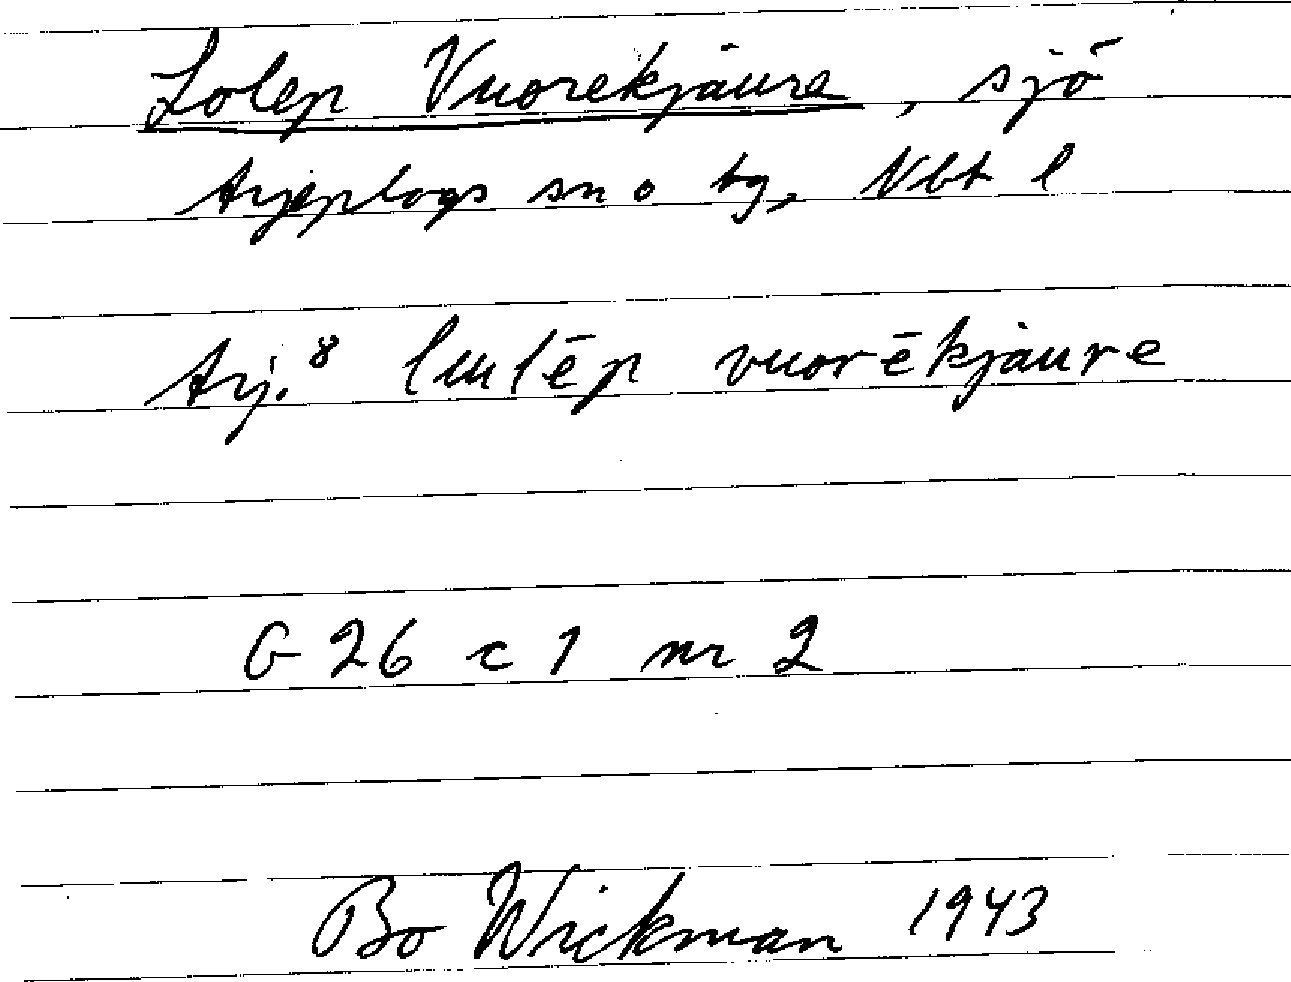 Lolep Vuorekjaure, sjö
Arjeplogs sn o tg, Nbt l
Arj.8 lulēp vuorēkjaure
G 26 c 1 nr 2
Bo Wickman 1943